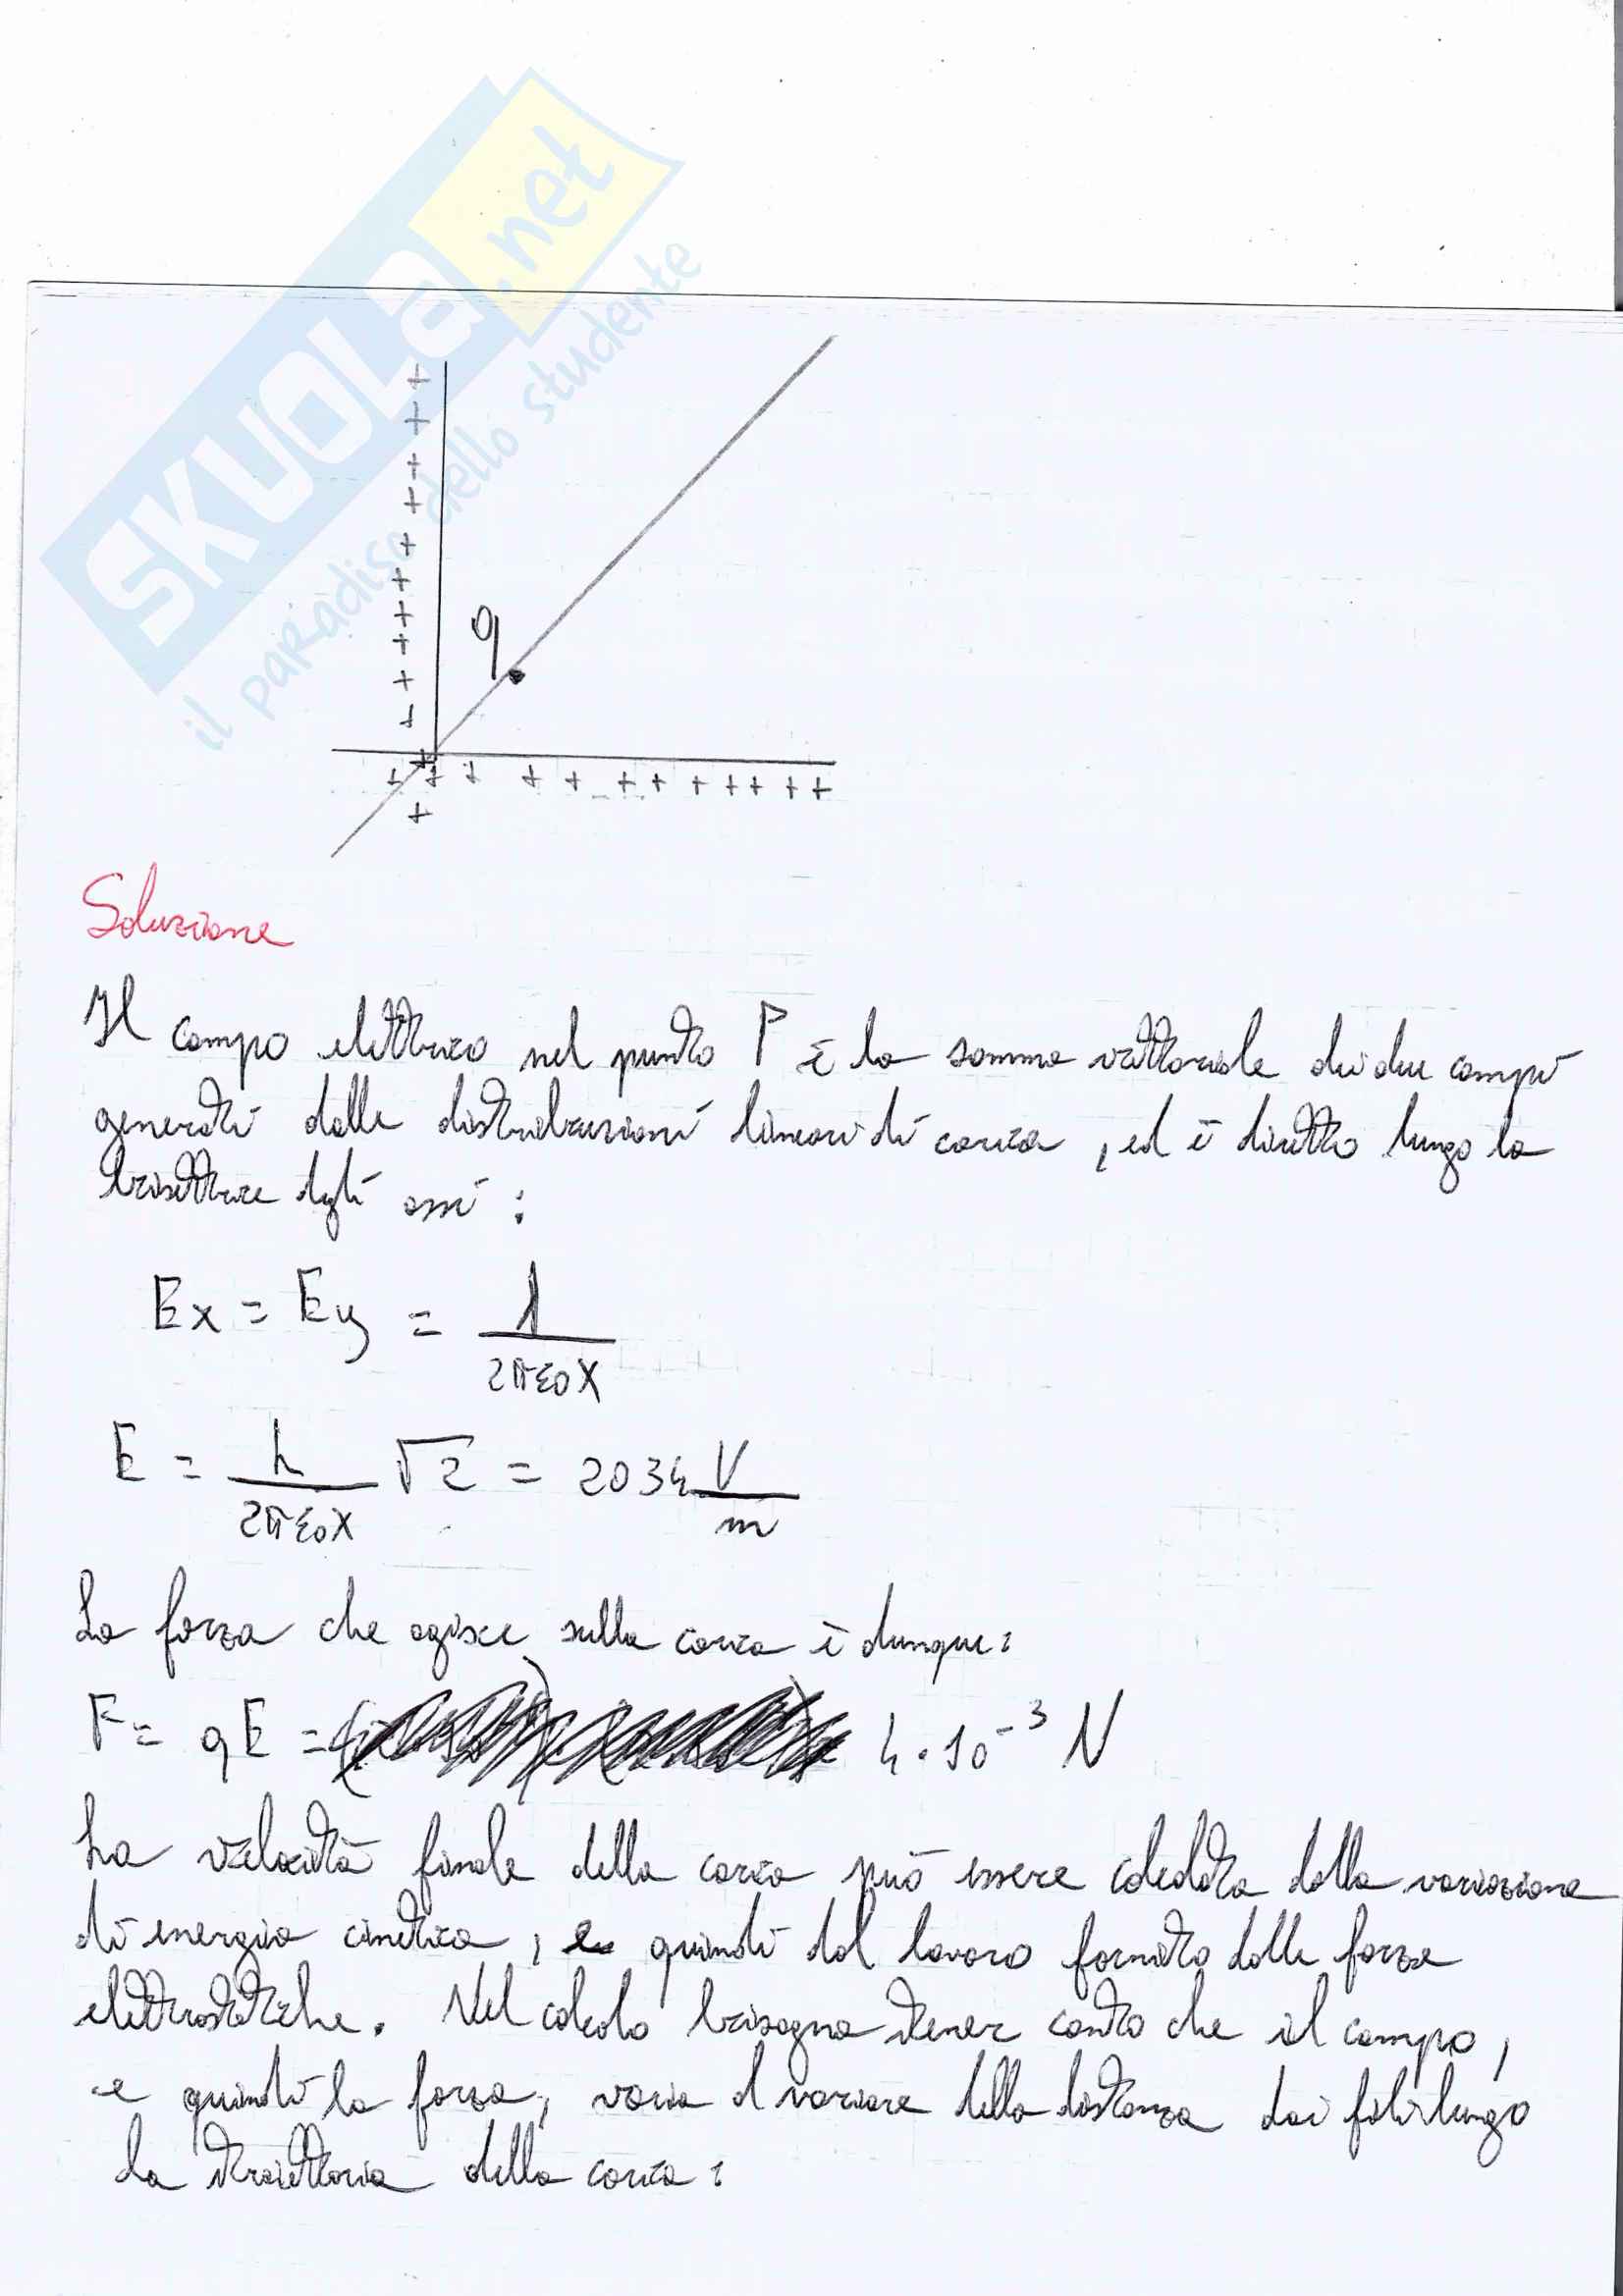 SKUOLA.net
il paradiso dello studente
+ + + + + + + + + + +
q
+ + + + + + + + + + + + +
+
Soluzione
Il campo elettrico nel punto P è la somma vettoriale dei due campi
generati dalle distribuzioni lineari di carica, ed è diretto lungo la
bisettrice degli assi:
Ex = Ey = λ / 2πε0x
E = λ / 2πε0x √2 = 2034 V/m
La forza che agisce sulla carica è dunque:
F = qE = 4·10⁻³ N
La velocità finale della carica può essere calcolata dalla variazione
di energia cinetica, e quindi dal lavoro fornito dalle forze
elettrostatiche. Nel calcolo bisogna tener conto che il campo,
e quindi la forza, varia al variare della distanza dai fili lungo
la traiettoria della carica: